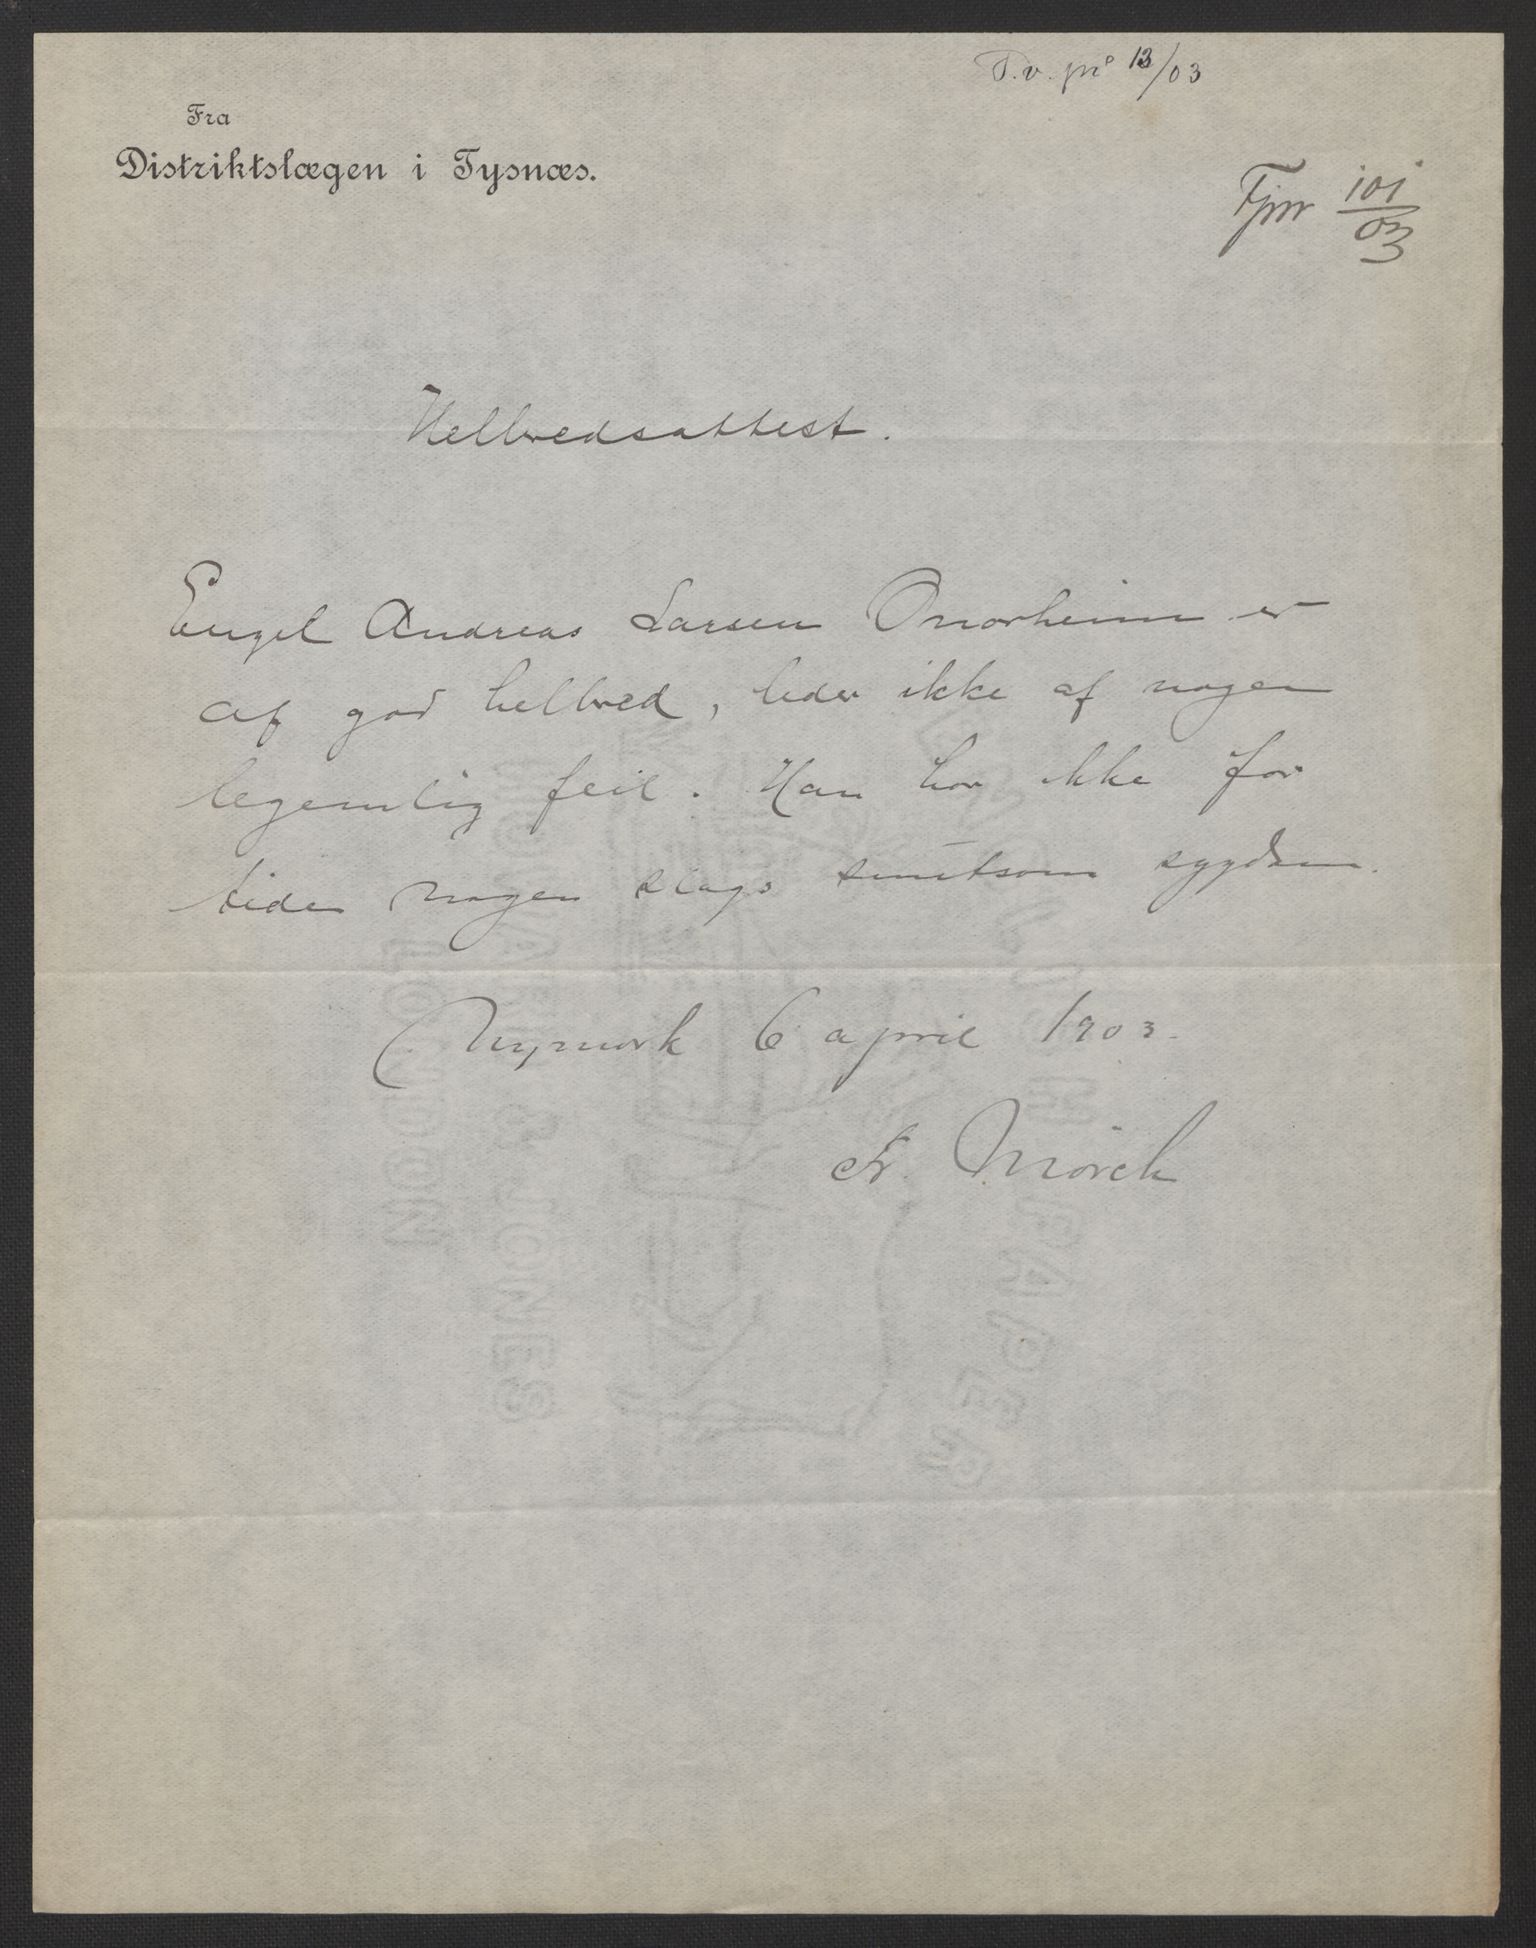 T.v. pr 13/03
Fra
Distriktslægen i Tysnæs.
Fjnr 101/03
Helbredsattest.
Engel Andreas Larsen Onarheim er
af god helbred, lider ikke af nogen
legemlig feil. Han har ikke for
tiden nogen slags smitsom sygdom.
Nymark 6 april 1903.
Fr. Mörch
HODGKIN & JONES
LONDON